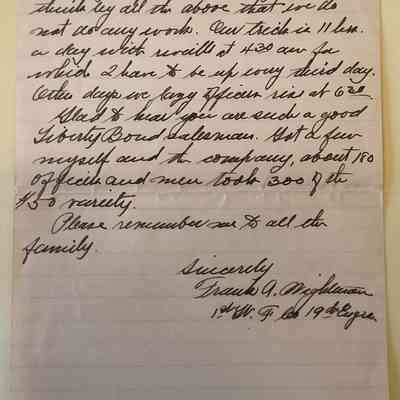 think by all the above that we do
not do any work. Our trick is 11 hrs.
a day with reveille at 430 am for
which I have to be up every third day.
Other days we lazy officers rise at 630.
Glad to hear you are such a good
Liberty Bond salesman. Got a few
myself and the company, about 180
officers and men took 300 of the
$50 variety.
Please remember me to all the
family.
Sincerely
Frank A. Wightman
1st Lt. F Co 19th Engrs.